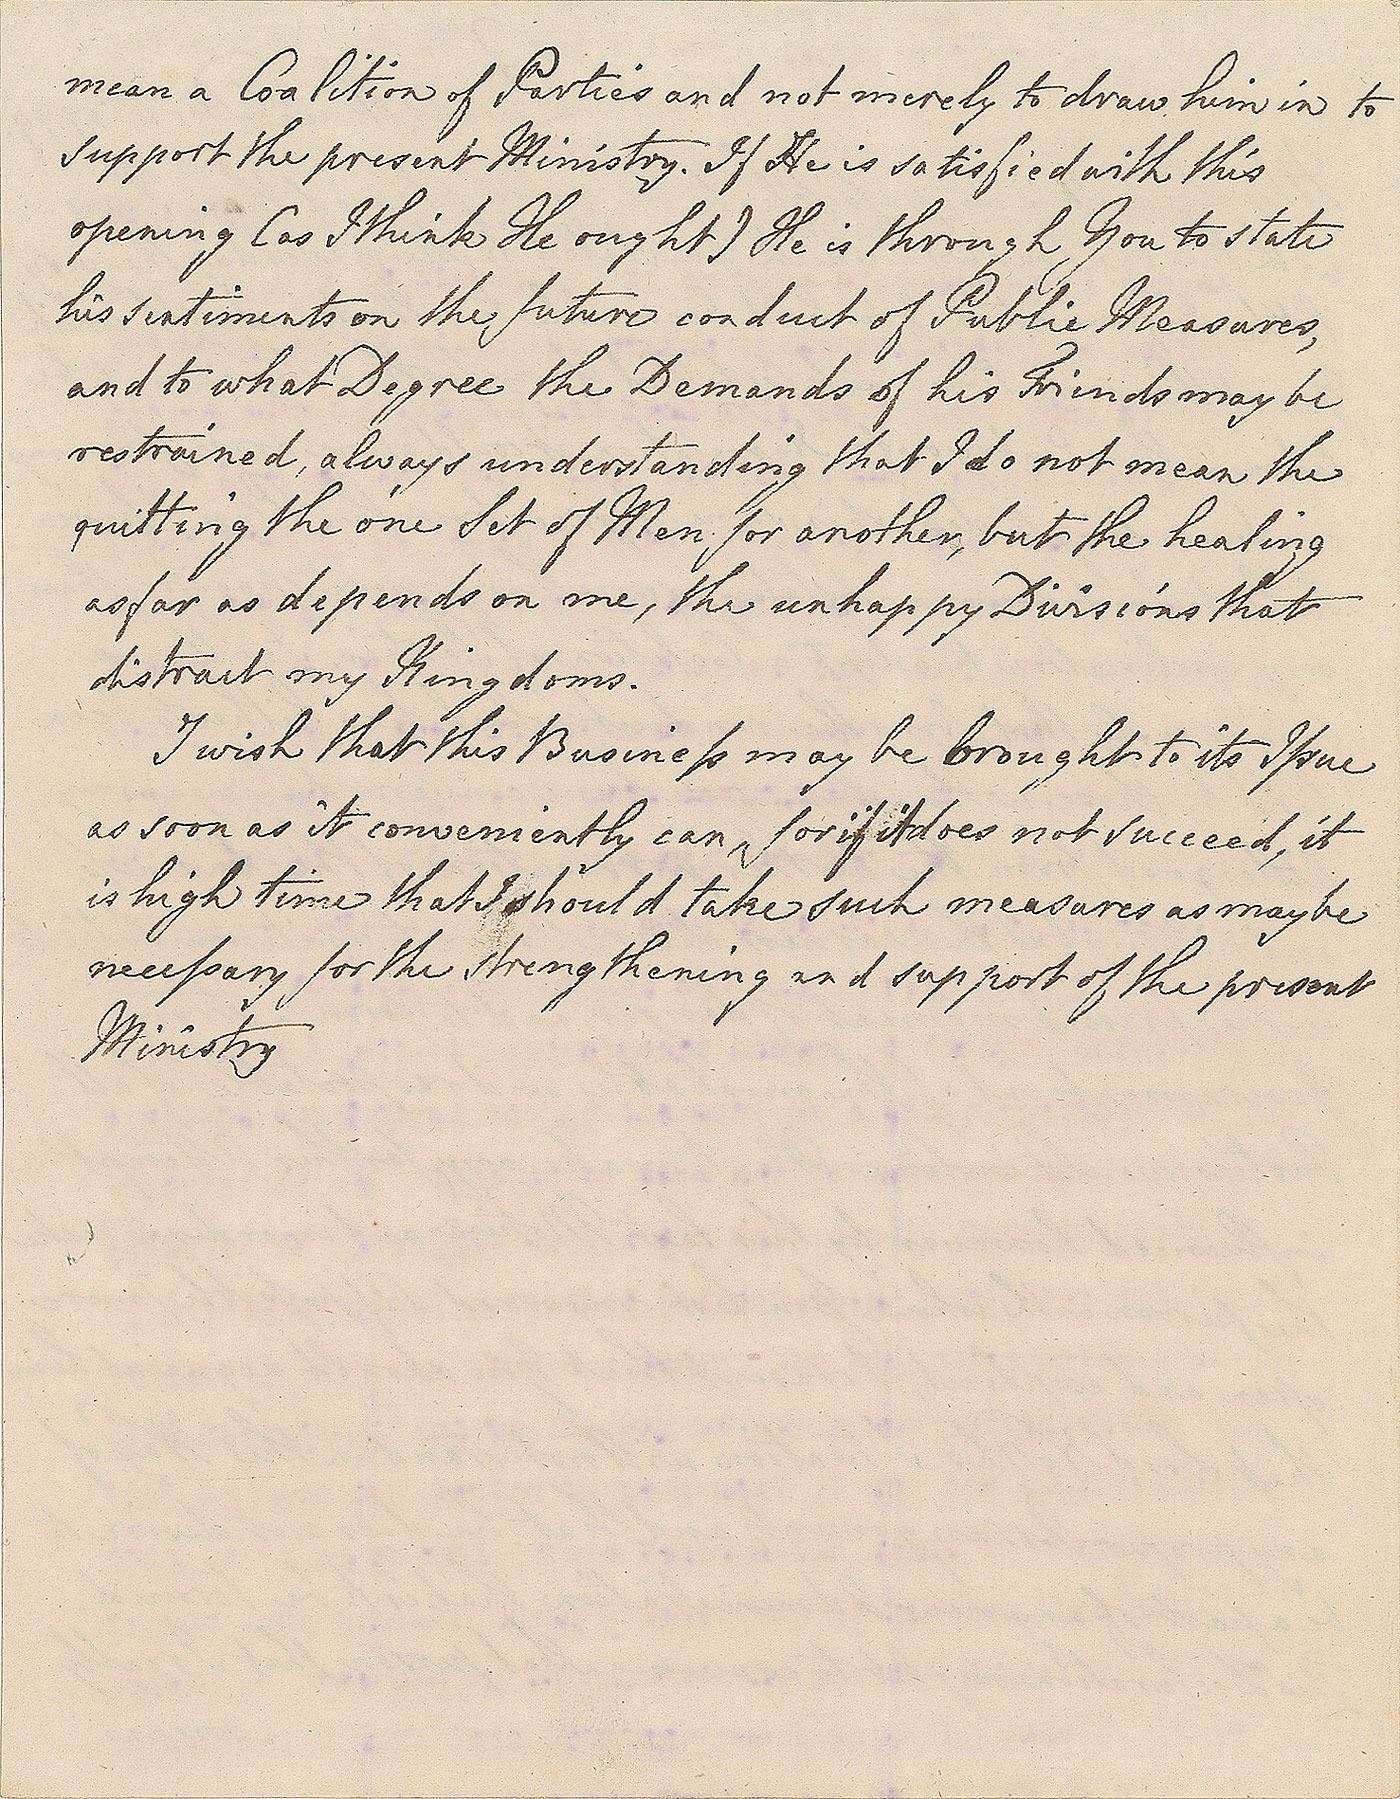 mean a Coalition of Parties and not merely to draw him in to
support the present Ministry. If He is satisfied with this
opening (as I think He ought) He is through You to state
his sentiments on the future conduct of Public Measures,
and to what Degree the Demands of his Friends may be
restrained, always understanding that I do not mean the
quitting the one Set of Men for another, but the healing
as far as depends on me, the unhappy Divisions that
distract my Kingdoms.
I wish that this Busineſs may be brought to its Iſsue
as soon as it conveniently can, for if it does not succeed, it
is high time that I should take such measures as may be
neceſsary for the strengthening and support of the present
Ministry